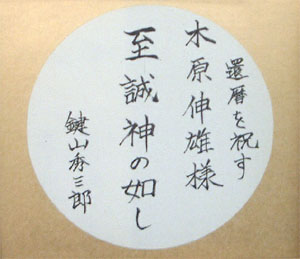 還暦を祝す
木原伸雄様
至誠神の如し
鍵山秀三郎